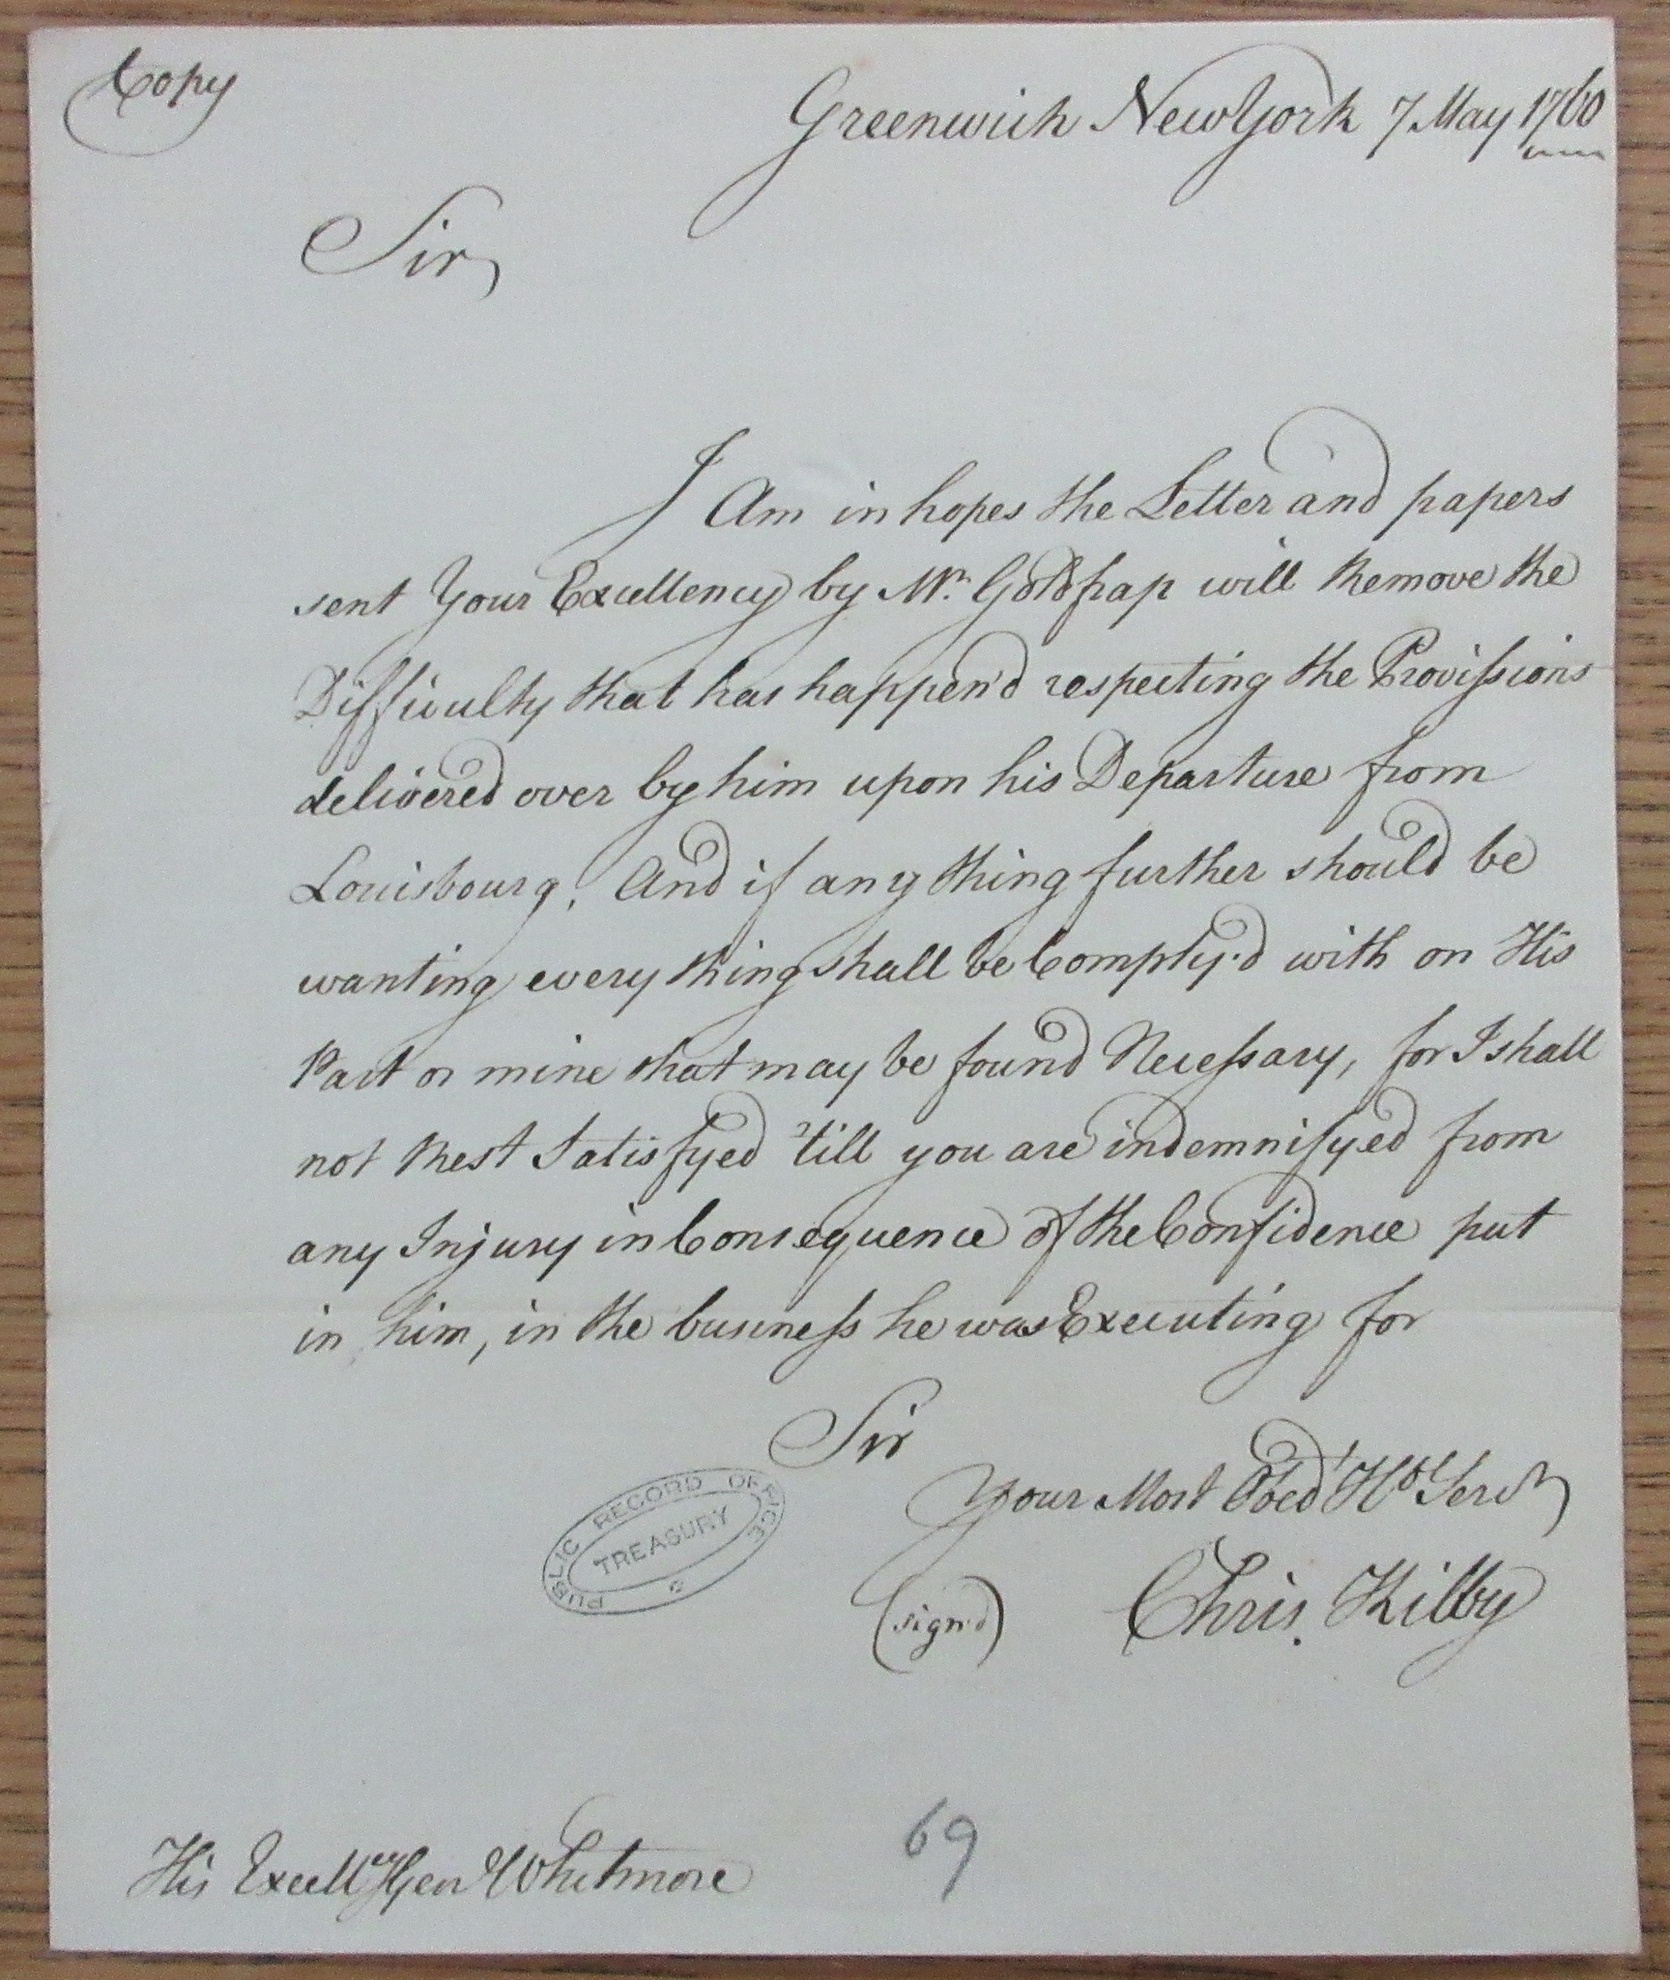 Copy
Greenwich New York 7 May 1760
Sir,
I Am in hopes the Letter and papers
sent Your Excellency by Mr. Goldfrap will Remove the
Difficulty that has happen'd respecting the Provissions
delivered over by him upon his Departure from
Louisbourg, And if any thing further should be
wanting every thing shall be Comply'd with on His
Part or mine that may be found Necessary, for I shall
not Rest Satisfyed 'till you are indemnifyed from
any Injury in Consequence of the Confidence put
in him, in the business he was Executing for
Sir
Your Most Obedt Hble Servt
(sign'd) Chris. Kilby
PUBLIC RECORD OFFICE
TREASURY
His Excellcy Gen Whitmore
69